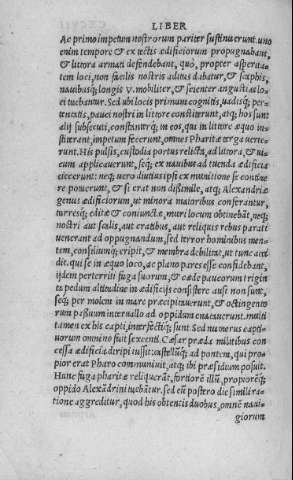 LIBER
Ac primo impetum nostrorum pariter sustinuerunt. uno
enim tempore & ex tectis ædificiorum propugnabant,
& littora armati defendebant, quò, propter asperita-
tem loci, non facilis nostris aditus dabatur, & scaphis,
nauibusq; longis v. mobiliter, & scienter angustias lo-
ci tuebantur. Sed ubi locis primum cognitis, uadisq; per-
tentatis, pauci nostri in littore constiterunt, atq; hos sunt
alij subsecuti, constanterq; in eos, qui in littore æquo insti-
terant, impetum fecerunt, omnes Pharitæ terga uerte-
runt. His pulsis, custodia portus relicta, ad littora, & ui-
cum applicauerunt, seq; ex nauibus ad tuenda ædificia
eiecerunt: neq; uero diutius ipsi ex munitione se contine-
re potuerunt, & si erat non dissimile, atq; Alexandriæ
genus ædificiorum, ut minora maioribus conferantur,
turresq; editæ & coniunctæ, muri locum obtinebāt, neq;
nostri aut scalis, aut cratibus, aut reliquis rebus parati
uenerant ad oppugnandum, sed terror hominibus men-
tem, consiliumq; eripit, & membra debilitat, ut tunc acci-
dit. qui se in æquo loco, ac plano pares esse confidebant,
ijdem perterriti fuga suorum, & cæde paucorum trigin
ta pedum altitudine in ædificijs consistere ausi non sunt,
seq; per molem in mare præcipitauerunt, & octingento
rum passuum interuallo ad oppidum enatauerunt. multi
tamen ex his capti, interfectiq; sunt. Sed numerus capti-
uorum omnino fuit sexcenti. Cæsar præda militibus con
cessa ædificia diripi iussit: castellūq; ad pontem, qui pro-
pior erat Pharo communiuit, atq; ibi præsidium posuit.
Hunc fuga pharitæ reliquerāt, fortiorē illū, propiorēq;
oppido Alexādrini tuebātur. sed eū postero die simili ra-
tione aggreditur, quod his obtentis duobus, omnē naui-
giorum